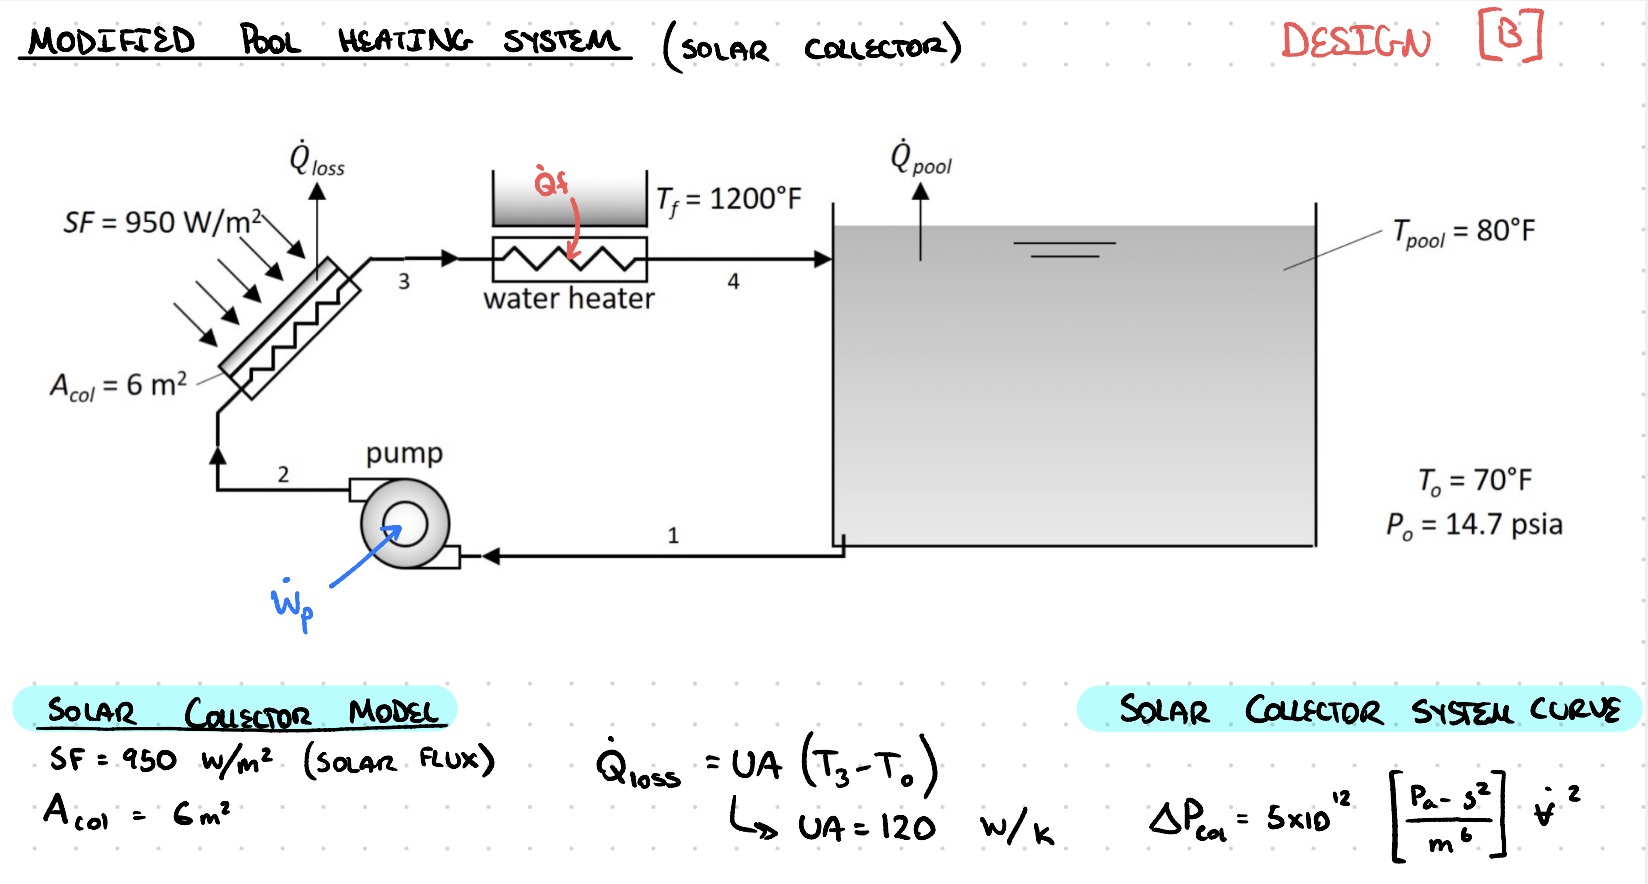 MODIFIED POOL HEATING SYSTEM (SOLAR COLLECTOR)
DESIGN [B]
Q̇loss
SF = 950 W/m²
Acol = 6 m²
Q̇f
Tf = 1200°F
3
water heater
4
Q̇pool
Tpool = 80°F
pump
2
1
Ẇp
To = 70°F
Po = 14.7 psia
SOLAR COLLECTOR MODEL
SF = 950 W/m² (SOLAR FLUX)
Acol = 6 m²
Q̇loss = UA (T3 - To)
↳ UA = 120 W/K
SOLAR COLLECTOR SYSTEM CURVE
ΔPcol = 5x10¹² [Pa-s²/m⁶] V̶̇²